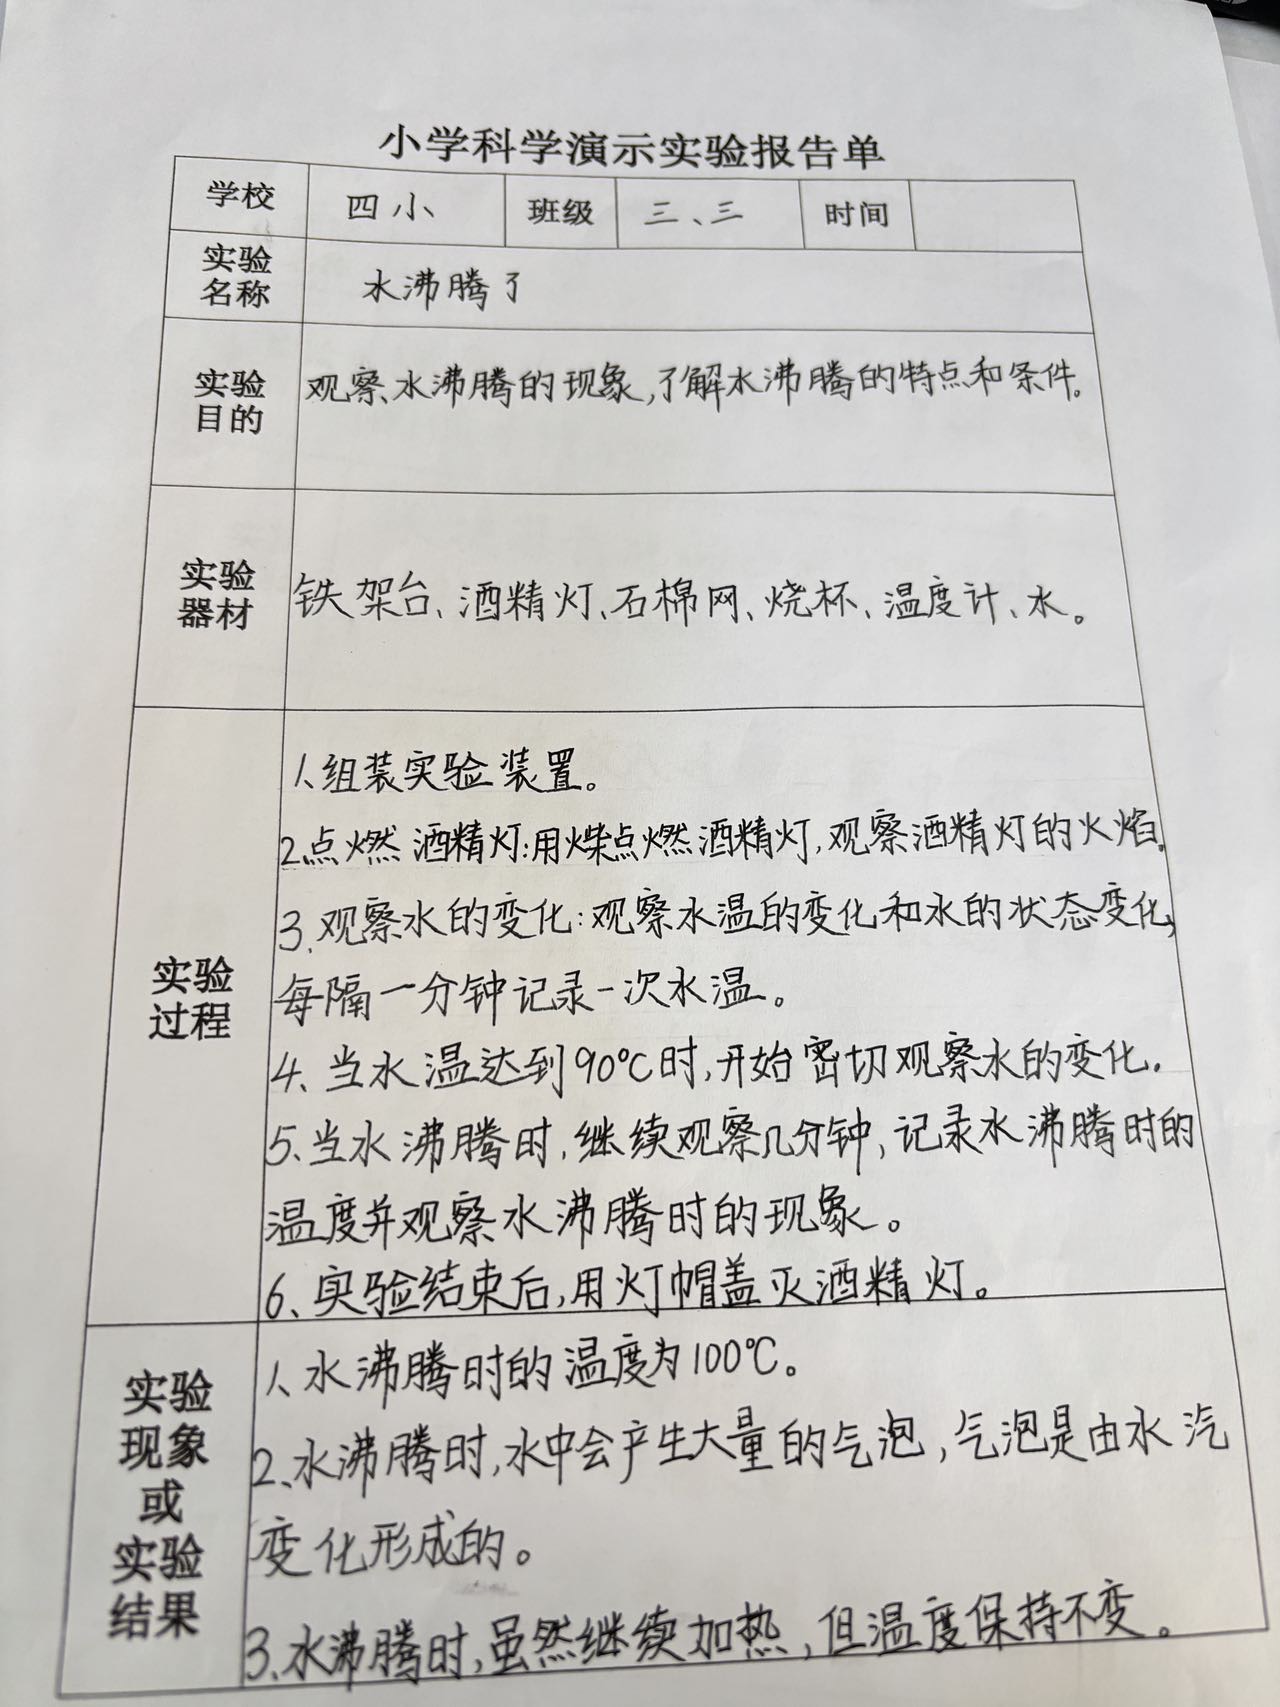 小学科学演示实验报告单
学校 四小 班级 三、三 时间
实验
名称
水沸腾了
实验
目的
观察水沸腾的现象,了解水沸腾的特点和条件。
实验
器材
铁架台、酒精灯、石棉网、烧杯、温度计、水。
实验
过程
1、组装实验装置。
2.点燃酒精灯:用火柴点燃酒精灯,观察酒精灯的火焰.
3.观察水的变化:观察水温的变化和水的状态变化,
每隔一分钟记录一次水温。
4、当水温达到90℃时,开始密切观察水的变化.
5、当水沸腾时,继续观察几分钟,记录水沸腾时的
温度并观察水沸腾时的现象。
6、实验结束后,用灯帽盖灭酒精灯。
实验
现象
或
实验
结果
1、水沸腾时的温度为100℃。
2、水沸腾时,水中会产生大量的气泡,气泡是由水汽
变化形成的。
3、水沸腾时,虽然继续加热,但温度保持不变。